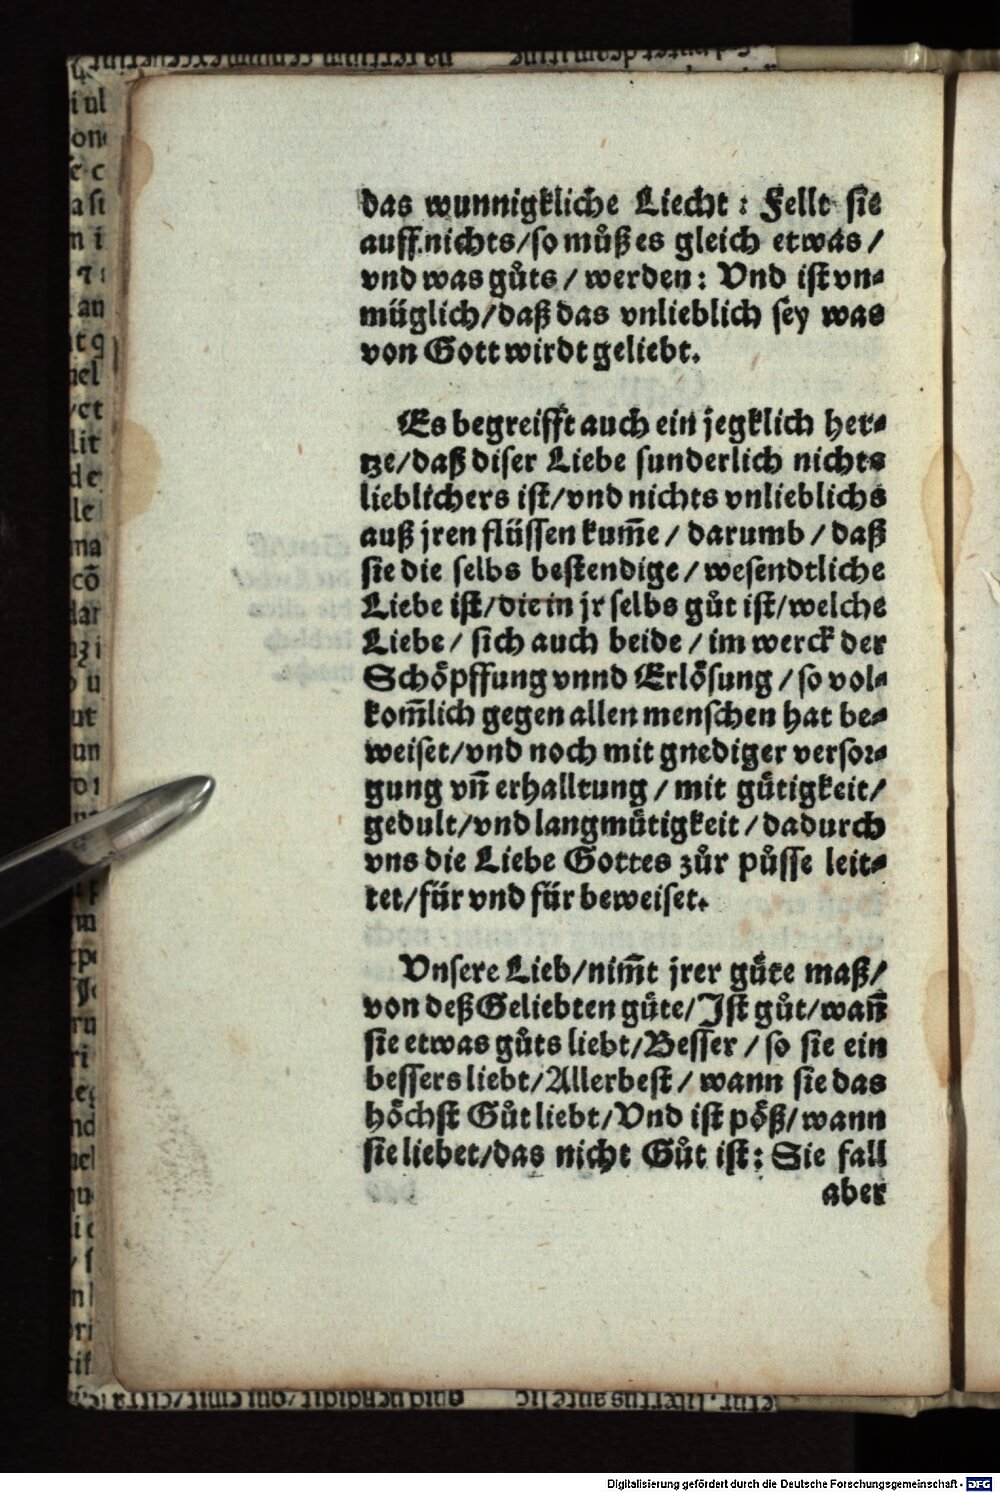 das wunnigkliche Liecht : Fellt sie
auff nichts/so můß es gleich etwas /
vnd was gůts / werden: Vnd ist vn-
müglich/daß das vnlieblich sey was
von Gott wirdt geliebt.
Es begreifft auch ein jegklich her-
tze/daß diser Liebe sunderlich nichts
lieblichers ist/vnd nichts vnlieblichs
auß jren flüssen kum̃e / darumb / daß
sie die selbs bestendige / wesendtliche
Liebe ist/die in jr selbs gůt ist/welche
Liebe / sich auch beide / im werck der
Schöpffung vnnd Erlösung / so vol-
kom̃lich gegen allen menschen hat be-
weiset/vnd noch mit gnediger versor-
gung vñ erhalltung / mit gütigkeit/
gedult/vnd langmütigkeit / dadurch
vns die Liebe Gottes zůr půsse leit-
tet/für vnd für beweiset.
Vnsere Lieb/nim̃t jrer güte maß/
von deß Geliebten güte/Ist gůt/wañ
sie etwas gůts liebt/Besser / so sie ein
bessers liebt/Allerbest / wann sie das
höchst Gůt liebt/Vnd ist pöß/wann
sie liebet/das nicht Gůt ist: Sie fall
aber
Digitalisierung gefördert durch die Deutsche Forschungsgemeinschaft - DFG